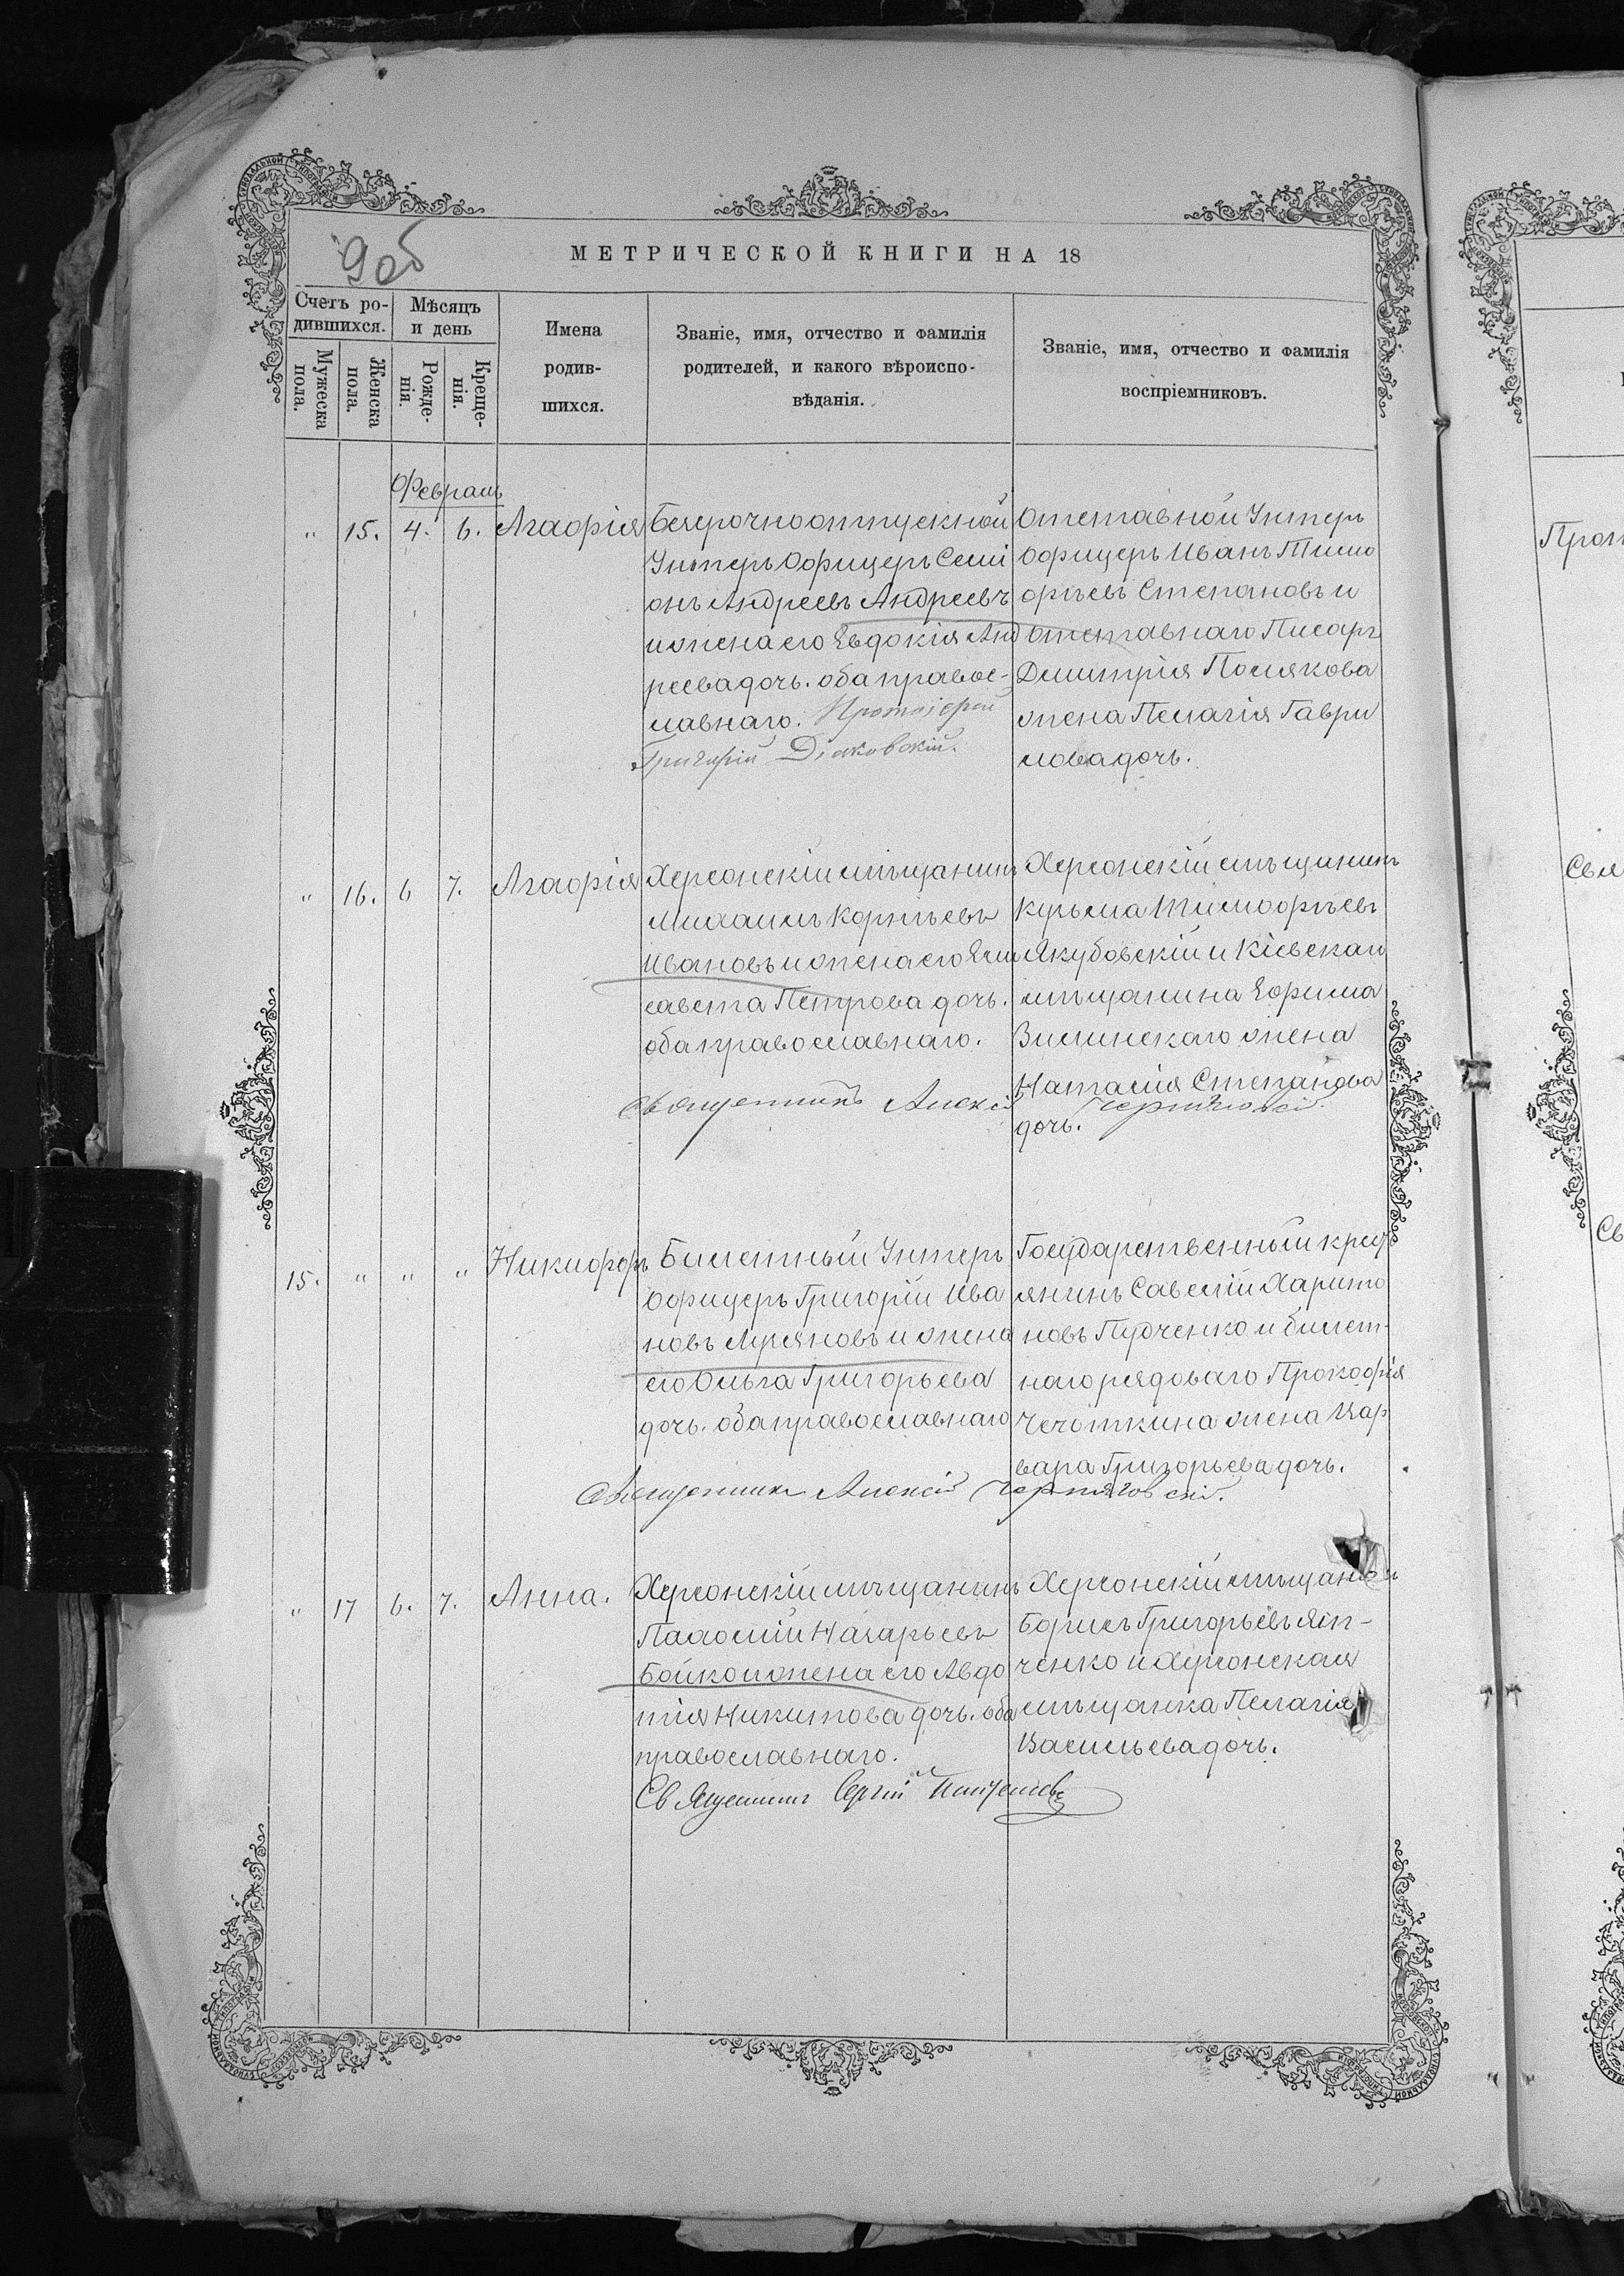 9об
МЕТРИЧЕСКОЙ КНИГИ НА 18
Счетъ ро-
дившихся.
Мужеска
пола.
Женска
пола.
Мѣсяцъ
и день
Рожде-
нія.
Креще-
нія.
Имена
родив-
шихся.
Званіе, имя, отчество и фамилія
родителей, и какого вѣроиспо-
вѣданія.
Званіе, имя, отчество и фамилія
воспріемниковъ.
Февраль
" 15. 4. 6. Агафія
Безсрочноотпускной
Унтеръ Офицеръ Сими
онъ Андреевъ Андреевъ
и жена его Евдокія Анд
реева дочь. оба правос-
лавнаго. Протоіерей
Григорій Діаковскій.
Отставной Унтеръ
Офицеръ Иванъ Тимо
фѣевъ Степановъ и
отставнаго Писаря
Димитрія Полякова
жена Пелагія Гаври
лова дочь.
" 16. 6 7. Агафія
Херсонскій мѣщанинъ
Михаилъ Корнѣевъ
Ивановъ и жена его Ели
савета Петрова дочь.
оба православнаго.
Священникъ Алексій
Херсонскій мѣщанинъ
Кузьма Тимофѣевъ
Якубовскій и Кіевскаго
мѣщанина Ефима
Вилинскаго жена
Наталія Степанова
дочь.
15. " " " Никифоръ
Билетный Унтеръ
Офицеръ Григорій Ива
новъ Лукяновъ и жена
его Ольга Григорьева
дочь. оба православнаго
Государственный крес
янинъ Савелій Харито
новъ Пудченко и билет-
наго рядоваго Прокофія
Чечоткина жена Вар
вара Григорьева дочь.
Священникъ Алексій Черняговскій.
" 17 6. 7. Анна.
Херсонскій мѣщанинъ
Паладій Назарьевъ
Бойко и жена его Авдо
тія Никитова дочь. оба
православнаго.
Священникъ Сергій
Херсонскій мѣщанинъ
Борисъ Григорьевъ Яп-
ченко и Херсонская
мѣщанка Пелагія
Васильева дочь.